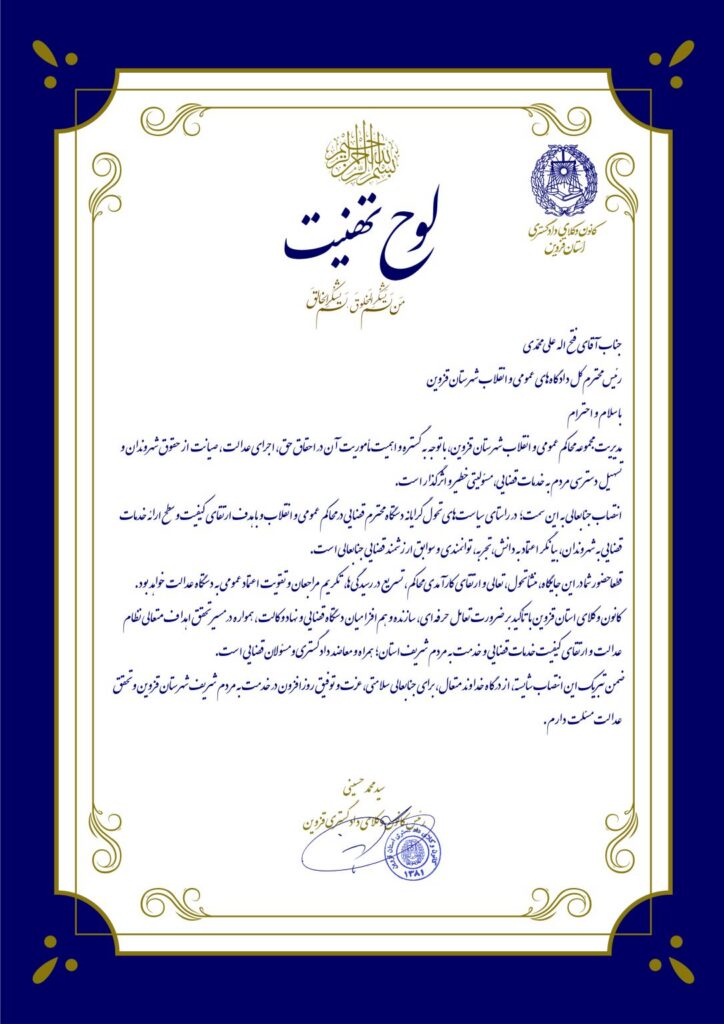 بسم الله الرحمن الرحیم
کانون وکلای دادگستری
استان قزوین
لوح تهنیت
مَن لَم یَشکُرِ المَخلوق لَم یَشکُرِ الخالِق
جناب آقای فتح اله علی محمدی
رئیس محترم کل دادگاه های عمومی و انقلاب شهرستان قزوین
با سلام و احترام
مدیریت مجموعه محاکم عمومی و انقلاب شهرستان قزوین، با توجه به گستره و اهمیت مأموریت آن در احقاق حق، اجرای عدالت، صیانت از حقوق شهروندان و
تسهیل دسترسی مردم به خدمات قضایی، مسئولیتی خطیر و اثرگذار است.
انتصاب جنابعالی به این سمت؛ در راستای سیاست های تحول گرایانه دستگاه محترم قضایی در محاکم عمومی و انقلاب و با هدف ارتقای کیفیت و سطح ارائه خدمات
قضایی به شهروندان، بیانگر اعتماد به دانش، تجربه، توانمندی و سوابق ارزشمند قضایی جنابعالی است.
قطعا حضور شما در این جایگاه، منشا تحول، تعالی و ارتقای کارآمدی محاکم، تسریع در رسیدگی ها، تکریم مراجعان و تقویت اعتماد عمومی به دستگاه عدالت خواهد بود.
کانون وکلای استان قزوین با تاکید بر ضرورت تعامل حرفه ای، سازنده و هم افزا میان دستگاه قضایی و نهاد وکالت، همواره در مسیر تحقق اهداف متعالی نظام
عدالت و ارتقای کیفیت خدمات قضایی و خدمت به مردم شریف استان؛ همراه و معاضد دادگستری و مسئولان قضایی است.
ضمن تبریک این انتصاب شایسته، از درگاه خداوند متعال، برای جنابعالی سلامتی، عزت و توفیق روزافزون در خدمت به مردم شریف شهرستان قزوین و تحقق
عدالت مسئلت دارم.
سید محمد حسینی
رئیس کانون وکلای دادگستری قزوین
کانون وکلای دادگستری استان قزوین
۱۳۸۱